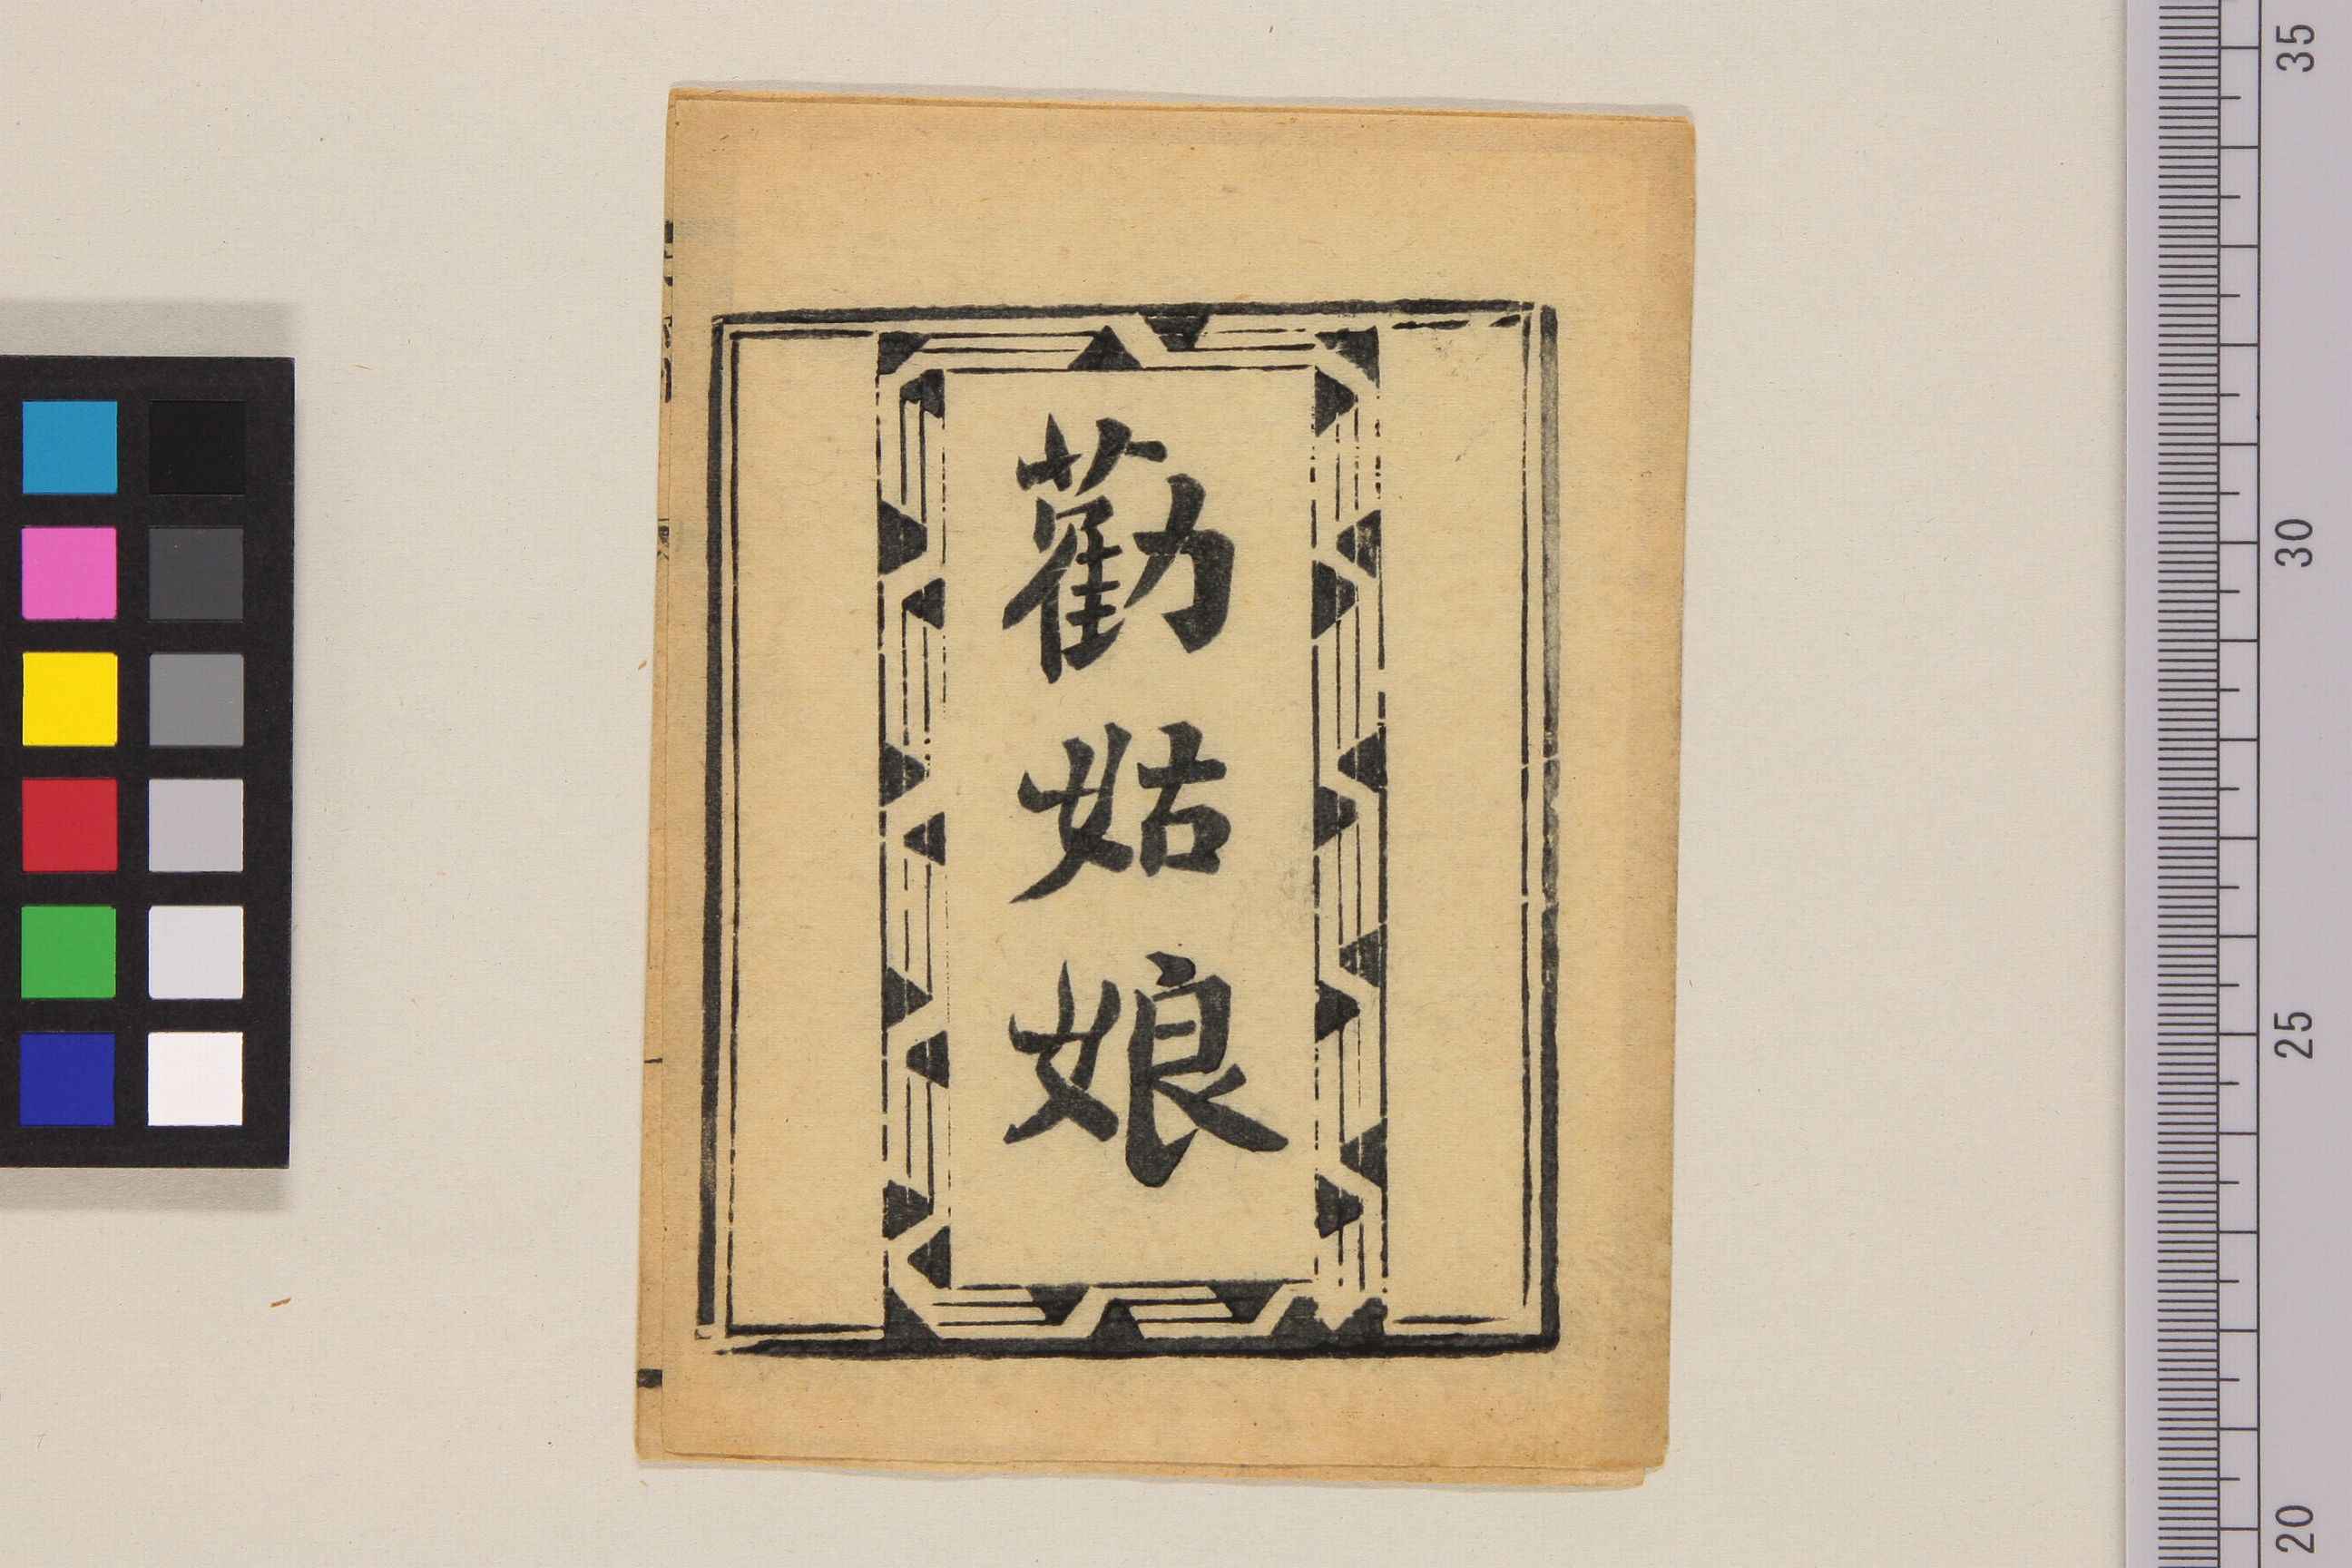 勸姑娘
35
30
25
20